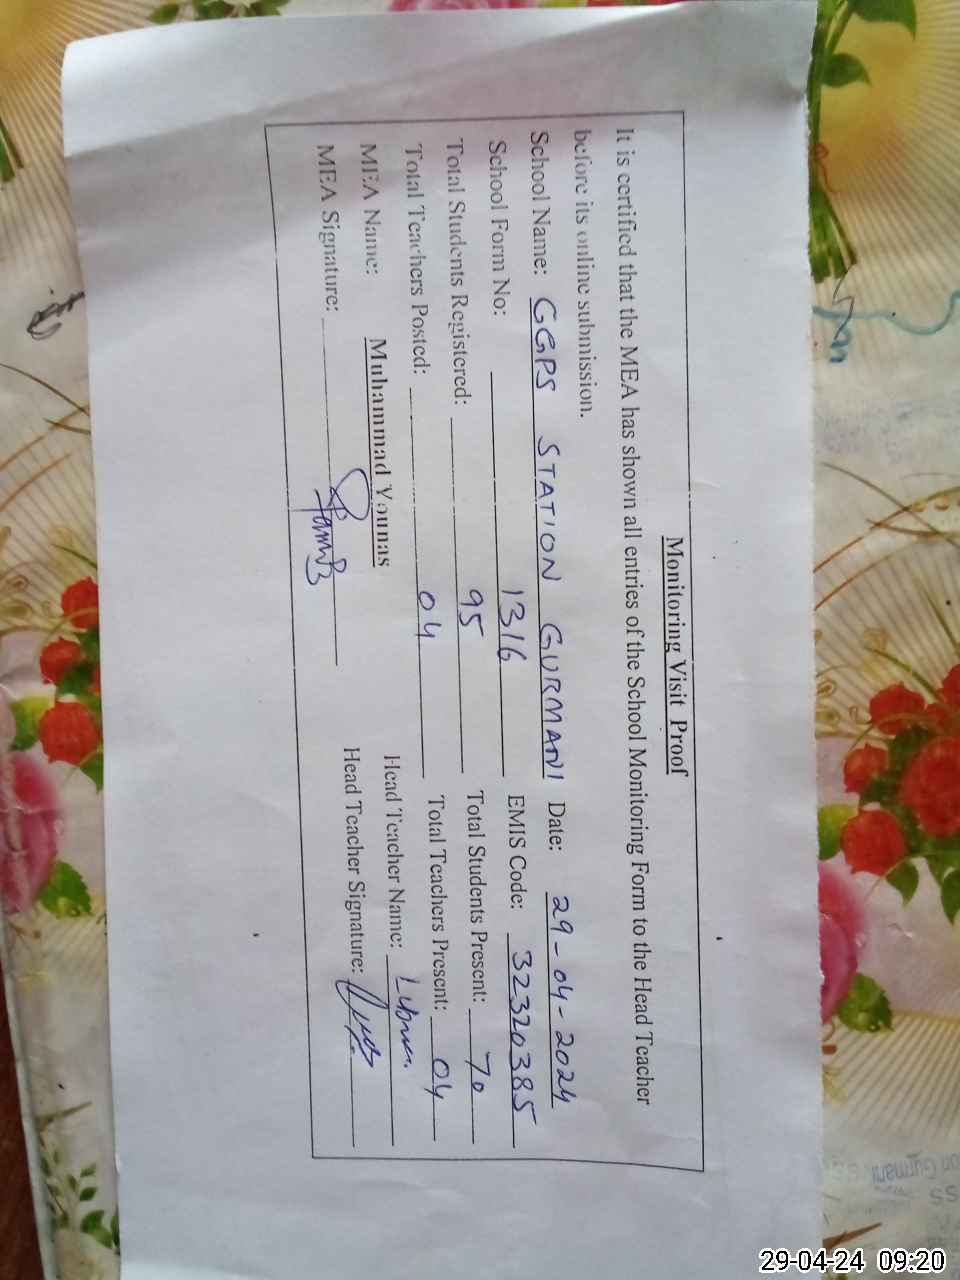 Monitoring Visit Proof
It is certified that the MEA has shown all entries of the School Monitoring Form to the Head Teacher
before its online submission.
School Name: GGPS STATION GURMANI Date: 29-04-2024
School Form No: 1316 EMIS Code: 32320385
Total Students Registered: 95 Total Students Present: 70
Total Teachers Posted: 04 Total Teachers Present: 04
MEA Name: Muhammad Younas Head Teacher Name: Lubna
MEA Signature: Head Teacher Signature:
29-04-24 09:20